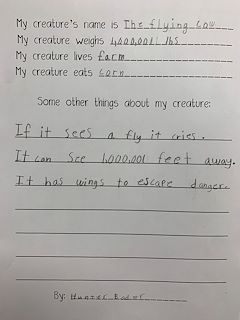 My creature's name is The flying Cow
My creature weighs 4,000,001 lbs
My creature lives farm
My creature eats corn
Some other things about my creature:
If it sees a fly it cries.
It can see 1,000,001 feet away.
It has wings to escape danger.
By: Hunter